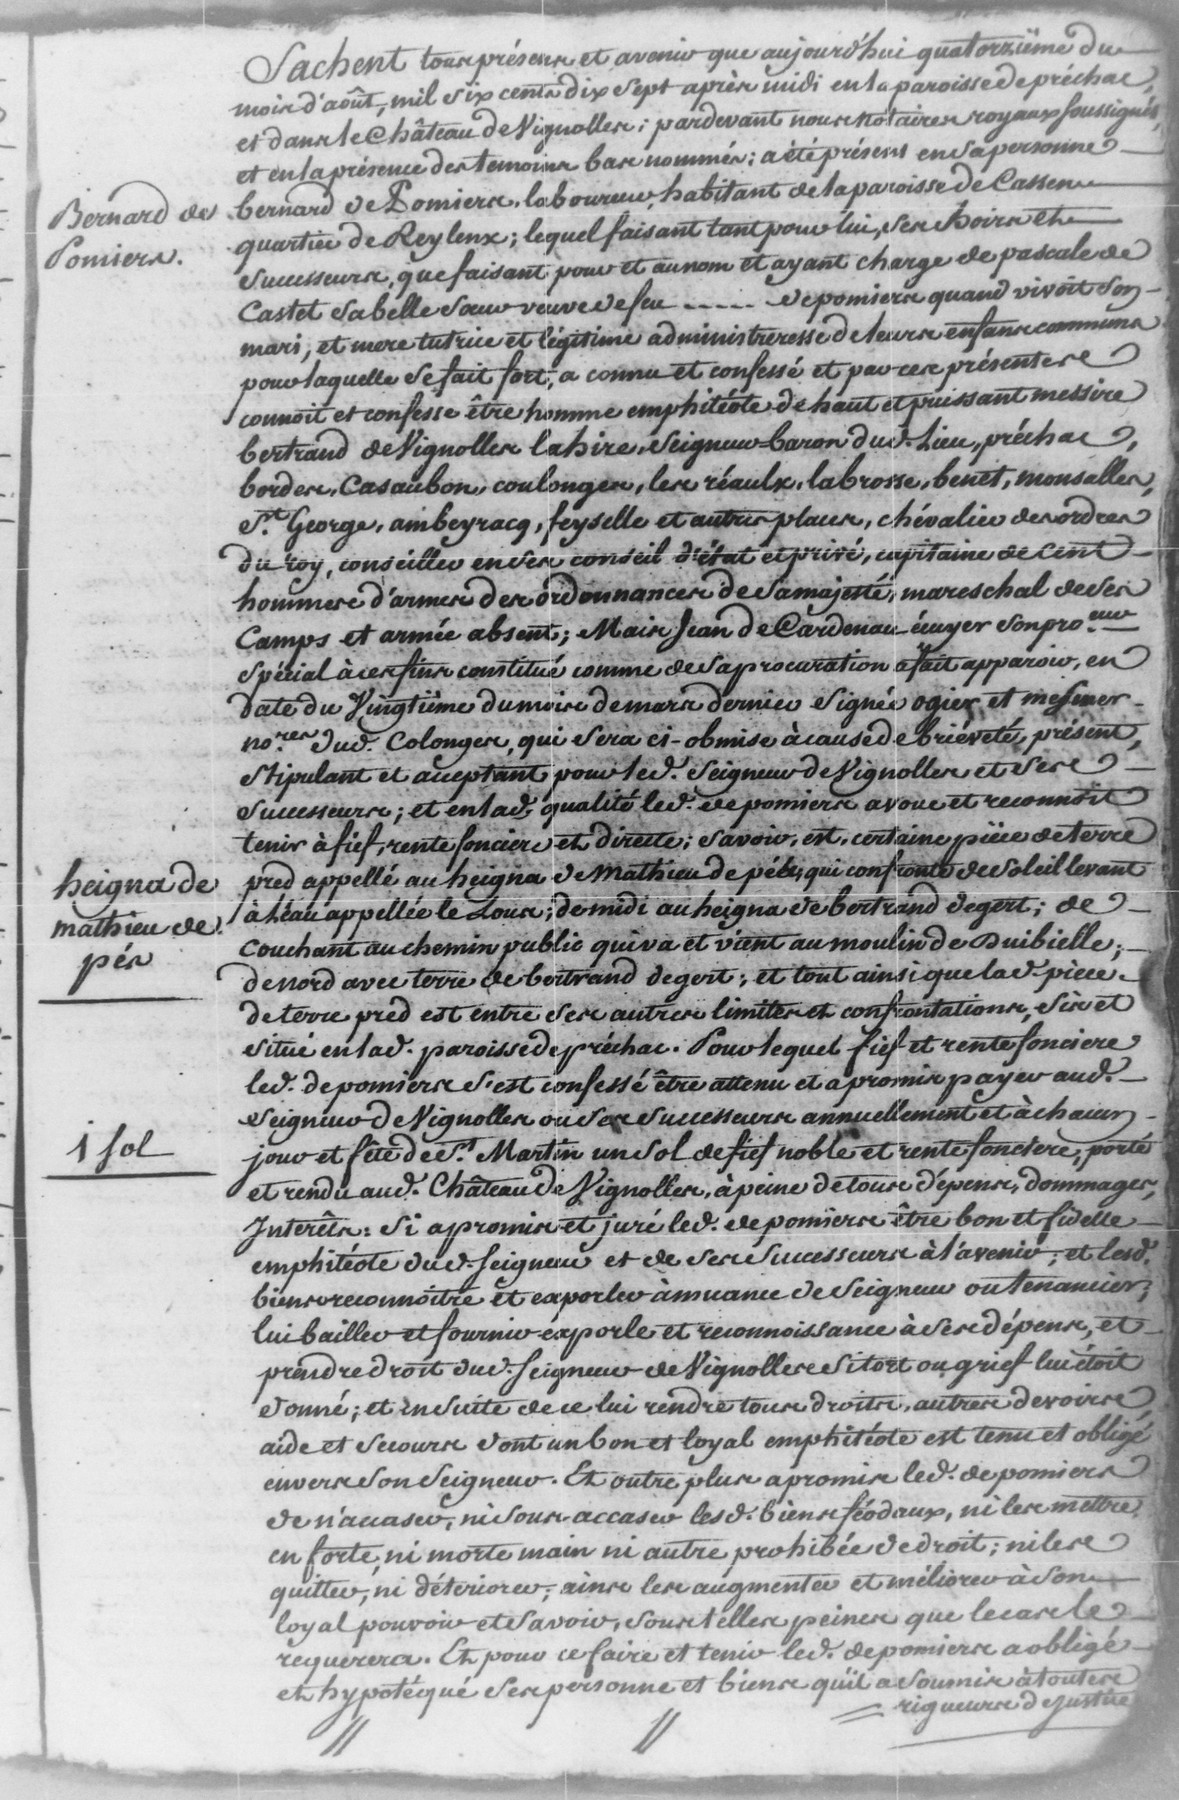 Sachent tous présens et avenir que aujourd'hui quatorzième du
mois d'août, mil six cents dix sept après midi en la paroisse de préchac,
et dans le Château de Vignolles; pardevant nous notaires royaux soussignés,
et en la présence des temoins bas nommés; a été présent en sa personne
Bernard de
Pomiers.
bernard de Pomiers, laboureur, habitant de la paroisse de Cassen
quartier de Reylenx; lequel faisant tant pour lui, ses hoirs et
successeurs, que faisant pour et au nom et ayant charge de pascale de
Castet sa belle sœur veuve de feu ..... de pomiers quand vivoit son
mari, et mere tutrice et légitime administreresse de leurs enfans communs
pour laquelle se fait fort, a connu et confessé et par ces présentes
connoit et confesse être homme emphitéote de haut et puissant messire
bertrand de Vignolles lahire, Seigneur baron dud. lieu, préchac,
bordes, Casaubon, coulonges, les réaulx, labrosse, benet, monsalles,
St. George, ambeyracq, feyselle et autres places, chévalier des ordres
du roy, conseiller en ses conseil d'état et privé, capitaine de cent
hommes d'armes des ordonnances de sa majesté, mareschal de ses
Camps et armée absent; Mais Jean de Cardenau écuyer son pro.eur
spécial à ces fins constitué comme de sa procuration a fait apparoir, en
date du Vingtième du mois de mars dernier signée ogier et mesmer
no.res dud. Colonges, qui sera ci-obmise à cause de brièveté, présent,
stipulant et acceptant pour led. Seigneur de Vignolles et ses
successeurs; et en lad. qualité led. de pomiers avoue et reconnoit
tenir à fief, rente fonciere et directe; savoir, est, certaine pièce de terre
heigna de
mathieu de
pés
pred appellé au heigna de Mathieu de pés, qui confronte de soleil levant
à l'eau appellée le Lous; de midi au heigna de bertrand degert; de
couchant au chemin public qui va et vient au moulin de Duibielle;
de nord avec terre de bertrand degert; et tout ainsi que lad. piece
de terre pred est entre ses autres limites et confrontations, sis et
situé en lad. paroisse de préchac. Pour lequel fief et rente fonciere
led. de pomiers s'est confessé être attenu et a promis payer aud.
Seigneur de Vignolles ou ses successeurs annuellement et à chacun
1 sol
jour et fête de St. Martin un sol de fief noble et rente fonciere, porté
et rendu aud. Château de Vignolles, à peine de tous dépens, dommages,
Interêts: Si a promis et juré led. de pomiers être bon et fidelle
emphitéote dud. Seigneur et de ses successeurs à l'avenir; et lesd.
biens reconnoître et exporler à muance de Seigneur ou tenancier;
lui bailler et fournir exporle et reconnoissance à ses dépens, et
prendre droit dud. Seigneur de Vignolles si tort ou grief lui étoit
donné; et ensuite de ce lui rendre tous droits, autres devoirs,
aide et secours dont un bon et loyal emphitéote est tenu et obligé
envers son Seigneur. Et outre plus a promis led. de pomiers
de n'accaser, ni sous-accaser lesd. biens féodaux, ni les mettre
en forte, ni morte main ni autre prohibée de droit; ni les
quitter, ni déteriorer, ains les augmenter et méliorer à son
loyal pouvoir et savoir, sous telles peines que le cas le
requerera. Et pour ce faire et tenir led. de pomiers a obligé
et hypotéqué ses personne et biens qu'il a soumis à toutes
rigueurs de justice